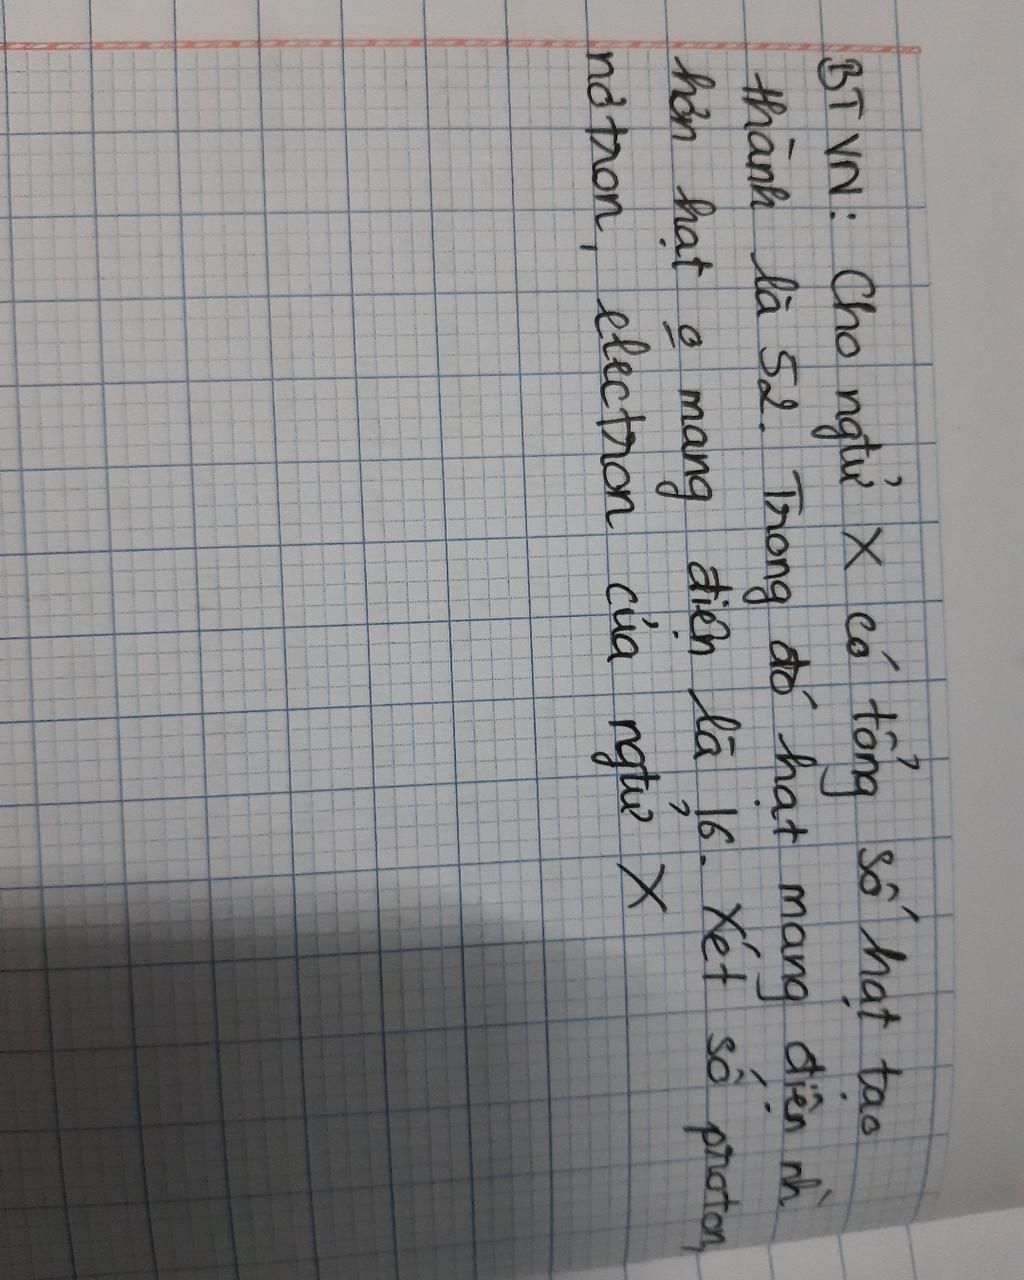 BTVN: Cho ngtử X có tổng số hạt tạo
thành là 52. Trong đó hạt mang điện nh`
hơn hạt o mang điện là 16. Xét số proton,
nơtron, electron của ngtử X